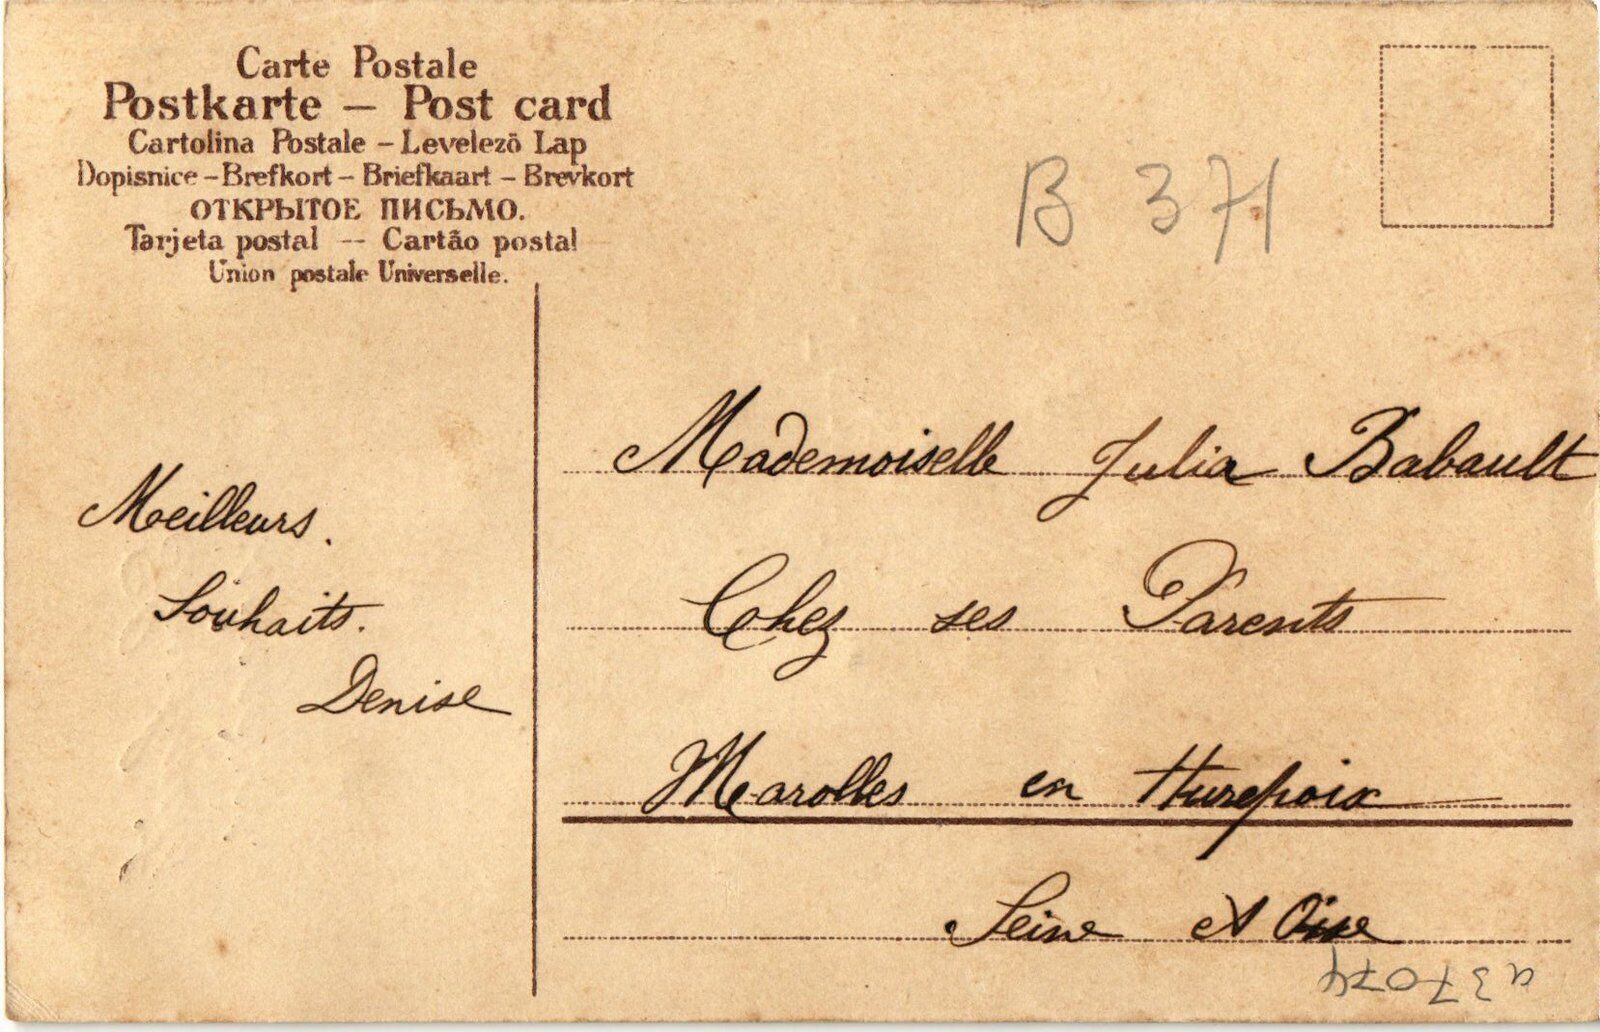 Carte Postale
Postkarte – Post card
Cartolina Postale – Levelezö Lap
Dopisnice – Brefkort – Briefkaart – Brevkort
ОТКРЫТОЕ ПИСЬМО.
Tarjeta postal -- Cartão postal
Union postale Universelle.
B 371
Meilleurs.
Souhaits.
Denise
Mademoiselle Julia Babault
Chez ses Parents
Marolles en Hurepoix
Seine et Oise